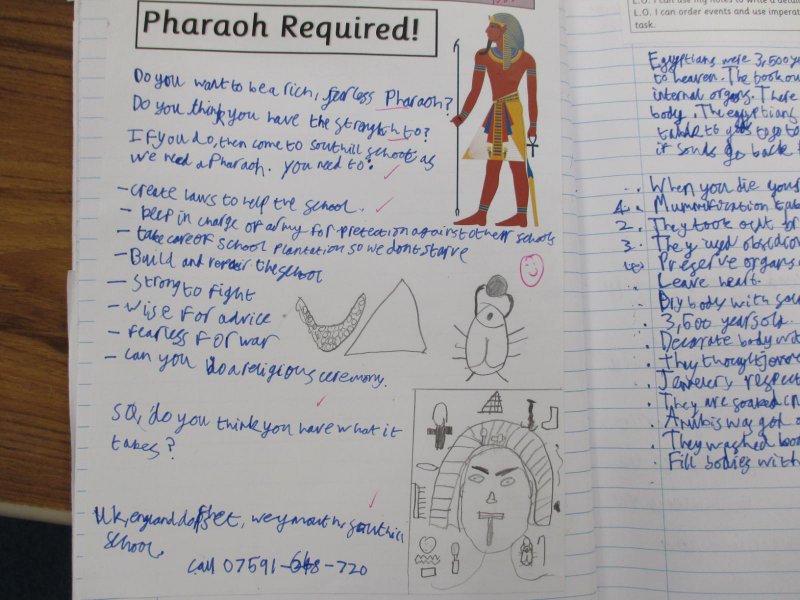 Pharaoh Required!
Do you want to be a rich, fearless Pharaoh?
Do you think you have the strength to?
If you do, then come to southill school as
we need a Pharaoh. you need to:
- create laws to help the school.
- be in charge of army for protection against other schools
- take care of school plantation so we dont starve
- Build and repair the school
- strong to fight
- wise for advice
- fearless for war
- can you do a religious ceremony.
So, do you think you have what it
takes?
Uk, england dorset, weymouth, southill
school.
call 07591-648-720
L.O. I can use my notes to write a
L.O. I can order events and use
task.
Egyptians were 3,500
to heaven. The book
internal organs. There
body. The egyptians
to go to
it souls go back
When you die your
Mummification
2. They took out
3. They used
Preserve organs
Leave heart.
Dry body with
3,500 years old.
Decorate body
They thought
respect
They are soaked in
Anubis was god
They washed
Fill bodies with